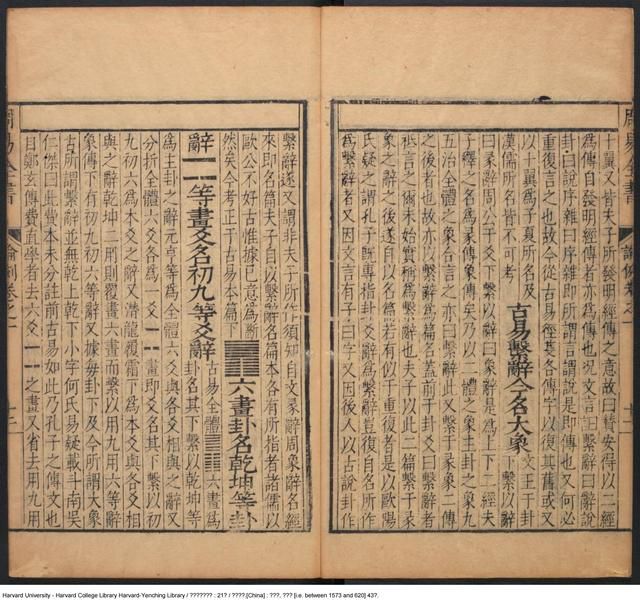 周易全書 論例卷之一
十翼又皆夫子所發明經傳之意故曰贊安得以二經
為傳自發明經傳者亦為傳也況文言曰繫辭曰辭說
卦曰說序雜曰序雜即所謂言謂說是即傳也又何必
重復言之也故今從古易徑莫各傳字以復其舊或又
以十翼為子夏所名及
漢儒所名皆不可考
古易繫辭今名大象
文王于卦
繫以辭
曰彖辭周公于爻下繫以辭曰象辭是為上下二經夫
子繹之名為彖傳象傳矣乃以二體之象主卦之象九
五治全體之象合言之亦曰繫辭此又繫于彖象二傳
之後者也故亦以繫辭為篇名蓋前于卦爻曰繫辭者
祇言之儞未始實稱為繫辭也夫子以此二篇繫于彖
象之辭之後遂自以名篇若有似于重復者是以歐陽
氏疑之謂孔子既專指卦爻辭為繫辭豈復自名所作
為繫辭者又因文言有子曰字又因後人以古說卦作
繫辭遂又謂非夫子所作須知自文彖辭周象辭名經
來即名篇矣夫子自以繫辭名篇本各有所指者諸儒以
歐公不好古惟據已意為斷
然矣今考正于古易本篇下
䷀䷁六畫卦名乾坤等卦
辭⚊⚋等畫爻名初九等爻辭
古易全體䷀䷁六畫為
卦名其下繫以乾坤等
為主卦之辭元亨等為全體六爻與各爻相與之辭又
分折全體六爻各為一爻⚊⚋畫即爻名其下繫以初
九初六為本爻之辭又潛龍履霜下為本爻與各爻相
與之辭乾坤二用則覆畫六畫而繫以用九用六等辭
象傳下有初九初六等辭又據每卦下及今所謂大象
古所謂繫辭並無乾上乾下小字何氏易疑載斗南吳
仁傑曰此費本未分註前古易如此乃孔子之傳文也
目鄭玄傳費直學者去六爻⚊⚋之畫又省去用九用
周易全書 論例卷之一
Harvard University - Harvard College Library Harvard-Yenching Library / ??????? : 21? / ????.[China] : ???, ??? [i.e. between 1573 and 620] 43?.